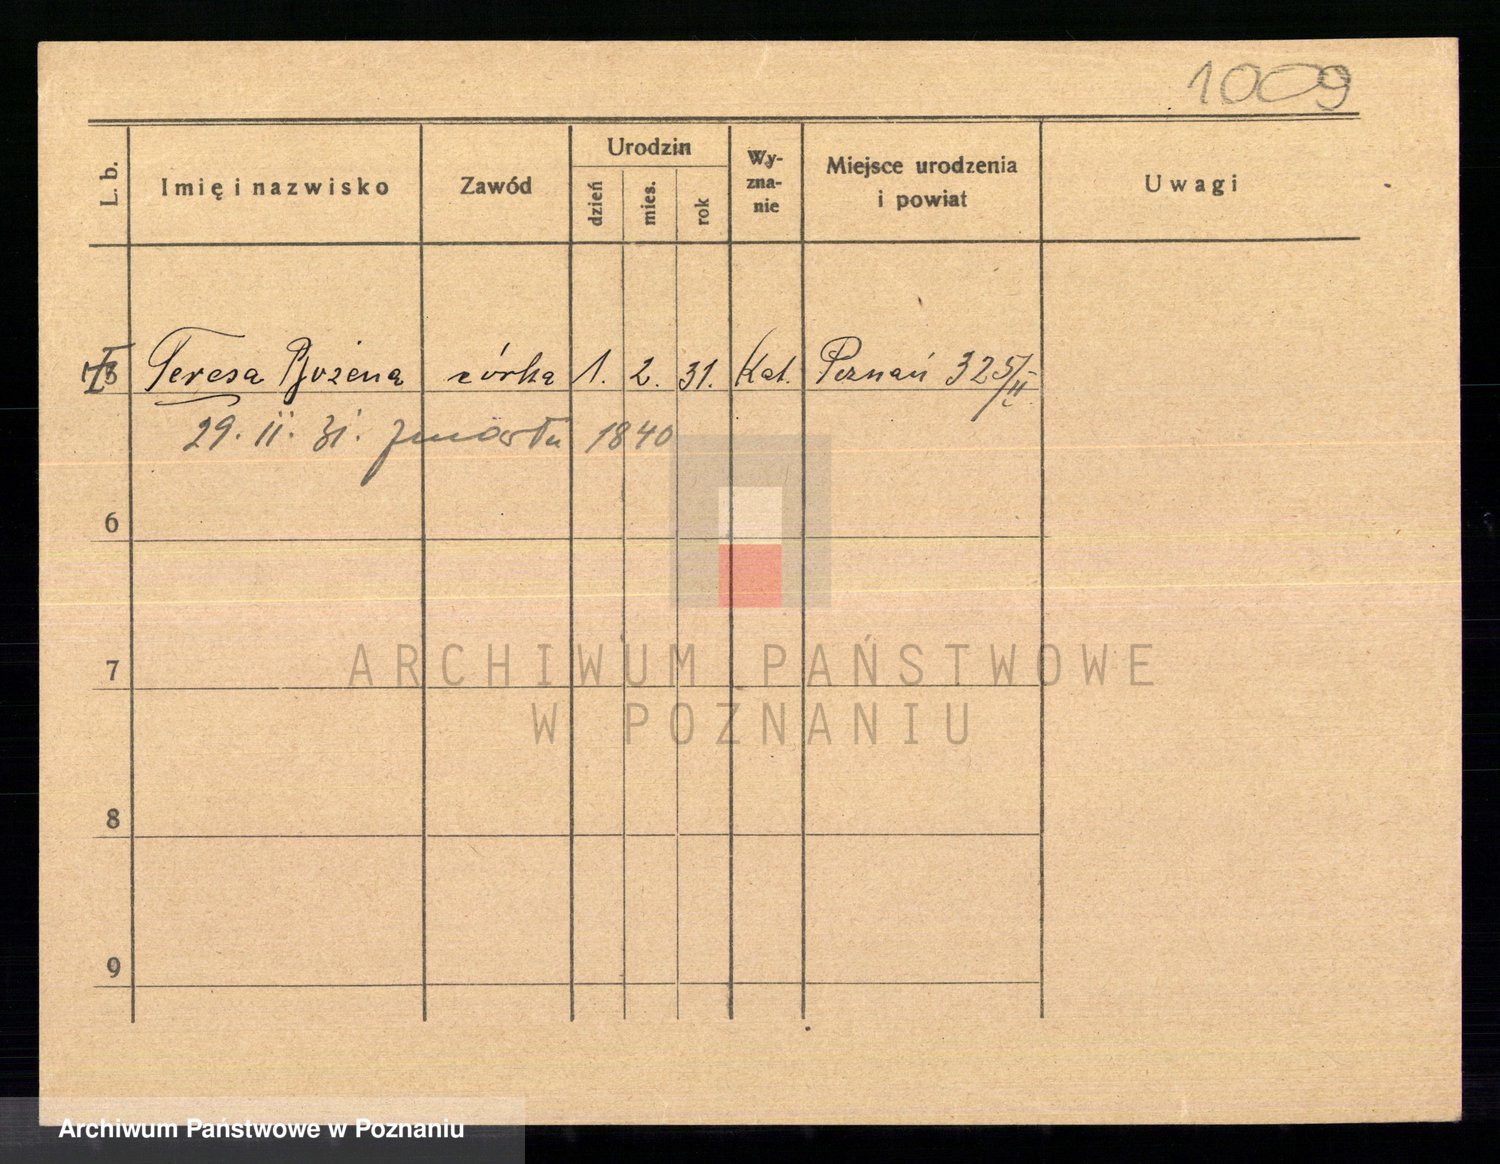 1009
L. b.
Imię i nazwisko
Zawód
Urodzin
dzień
mies.
rok
Wy-
zna-
nie
Miejsce urodzenia
i powiat
Uwagi
Teresa Bożena córka 1. 2. 31. Kat. Poznań 325/II
29. II. 31. zmarła 1840
6
7
8
9
ARCHIWUM PAŃSTWOWE
W POZNANIU
Archiwum Państwowe w Poznaniu